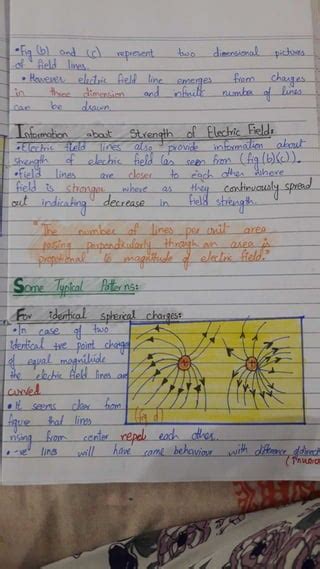 • Fig (b) and (c) represent two dimensional pictures
of field lines.
• However electric field line emerges from charges
in three dimension and infinite number of lines
can be drawn.
Information about Strength of Electric Field:
• Electric field lines also provide information about
strength of electric field (as seen from (fig (b)(c)).
• Field lines are closer to each other where
field is stronger where as they continuously spread
out indicating decrease in field strength.
"The number of lines per unit area
passing perpendicularly through an area is
proportional to magnitude of electric field."
Some Typical Patterns:
For identical spherical charges:
• In case of two
identical +ve point charges
of equal magnitude
the electric field lines are
curved
• It seems clear from
figure that lines
rising from center repel each other.
• -ve lines will have same behaviour with difference of direction
(fig d)
+
+